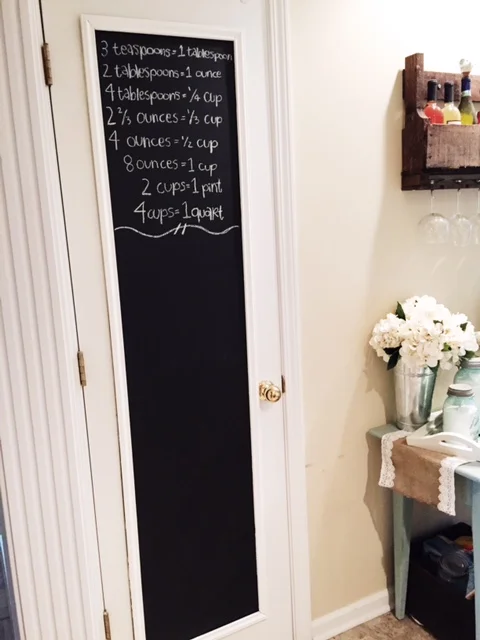 3 teaspoons=1 tablespoon
2 tablespoons=1 ounce
4 tablespoons=1/4 cup
2 2/3 ounces=1/3 cup
4 ounces=1/2 cup
8 ounces=1 cup
2 cups=1 pint
4 cups=1 quart